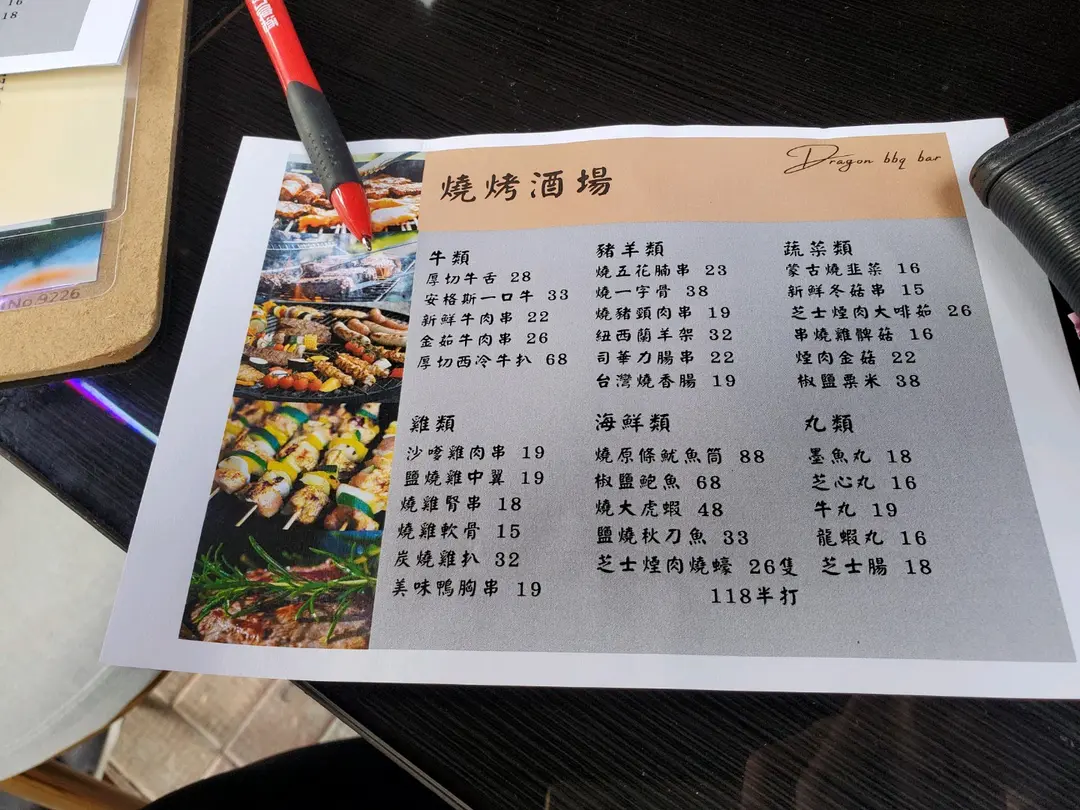 16
18
No.9226
燒烤酒場
Dragon bbq bar
牛類
厚切牛舌 28
安格斯一口牛 33
新鮮牛肉串 22
金茹牛肉串 26
厚切西冷牛扒 68
豬羊類
燒五花腩串 23
燒一字骨 38
燒豬頸肉串 19
紐西蘭羊架 32
司華力腸串 22
台灣燒香腸 19
蔬菜類
蒙古燒韭菜 16
新鮮冬菇串 15
芝士煙肉大啡茹 26
串燒雞髀菇 16
煙肉金菇 22
椒鹽粟米 38
雞類
沙嗲雞肉串 19
鹽燒雞中翼 19
燒雞腎串 18
燒雞軟骨 15
炭燒雞扒 32
美味鴨胸串 19
海鮮類
燒原條魷魚筒 88
椒鹽鮑魚 68
燒大虎蝦 48
鹽燒秋刀魚 33
芝士煙肉燒蠔 26隻
118半打
丸類
墨魚丸 18
芝心丸 16
牛丸 19
龍蝦丸 16
芝士腸 18